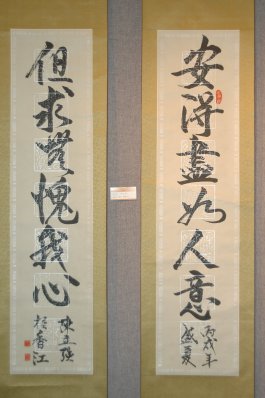 安得盡如人意
丙戌年
盛夏
但求無愧我心
陳立強
於香江